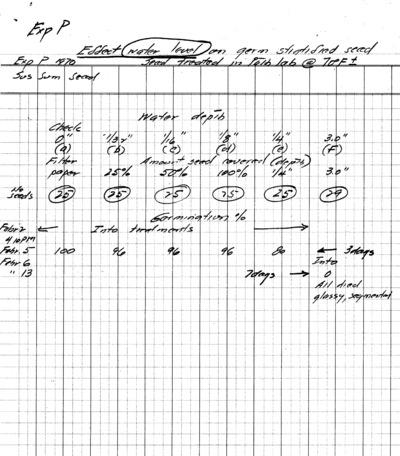 Exp P
Effect water level on germ stratified seed
Exp P 1970 Seed treated in Feib lab @ 70°F ±
Sus Sum seed
Water depth
Check
0" 1/32" 1/16" 1/8" 1/4" 3.0"
(a) (b) (c) (d) (e) (F)
Filter Amount seed covered (depth)
paper 25% 50% 100% 1/4" 3.0"
No seeds 25 25 25 25 25 29
Germination %
Febr 2 ← Into treatments →
4:10 PM
Febr. 5 100 96 96 96 80 ← 3days
Febr 6 Into
" 13 7days → 0
All died
glassy, segmented